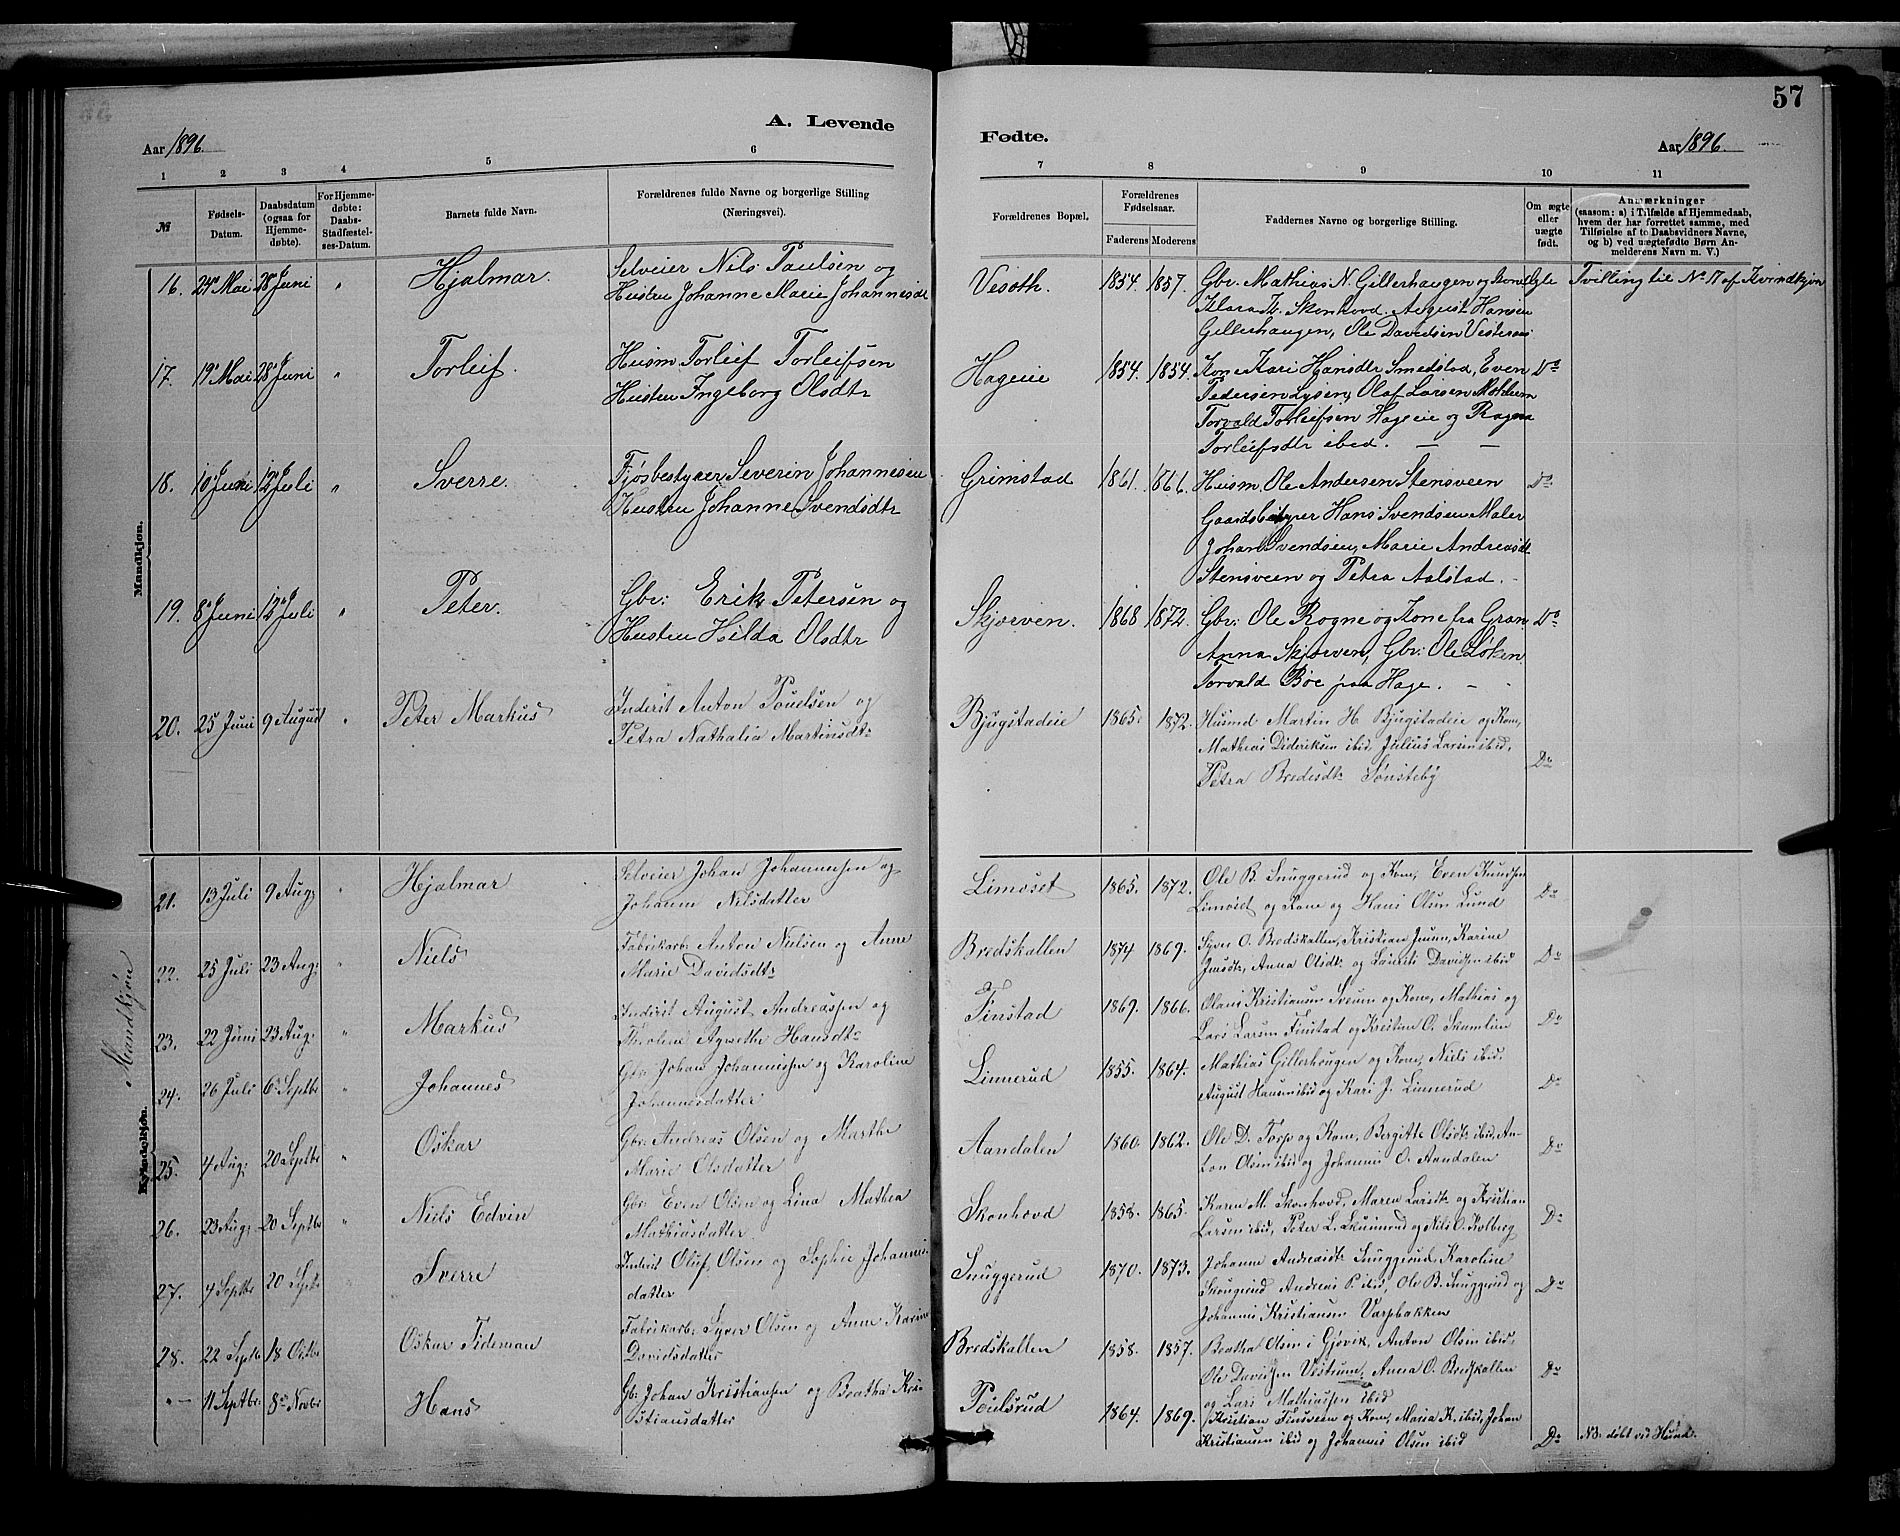 57
A. Levende Fødte.
Aar 1896. Aar 1896.
1 2 3 4 5 6 7 8 9 10 11
№ Fødsels-Datum. Daabsdatum (ogsaa for Hjemmedøbte). For Hjemmedøbte: Daabs-Stadfæstelses-Datum. Barnets fulde Navn. Forældrenes fulde Navne og borgerlige Stilling (Næringsvei). Forældrenes Bopæl. Forældrenes Fødselsaar. Faderens Moderens Faddernes Navne og borgerlige Stilling. Om ægte eller uægte født. Anmærkninger (saasom: a) i Tilfælde af Hjemmedaab, hvem der har forrettet samme, med Tilføielse af to Daabsvidners Navne, og b) ved uægtefødte Børn Anmelderens Navn m. V.)
Mandkjøn.
16. 24 Mai 28 Juni " Hjalmar. Selveier Nils Paulsen og Vesoth. 1854. 1857. Gbr. Mathias N. Gillerhaugen og Kone Ægte Tvilling til No 17 af Kvindekjøn
Hustru Johanne Marie Johannesdt Klara Th. Skonhovd. August Hansen
Gillerhaugen, Ole Davidsen Vestrum
17. 19 Mai 28 Juni " Torleif. Husm Torleif Torleifsen Hageeie 1854. 1854. Kone Kari Hansdtr Smedstad, Even Do
Hustru Ingeborg Olsdtr Pedersen Lysen, Olaf Larsen
Torvald Torleifsen Hageeie og Ragna
Torleifsdtr ibed. — —
18. 10 Juni 12 Juli " Sverre. Fjøsbestyrer Severin Johannesen Grimstad 1861. 1866. Husm. Ole Andersen Stensveen Do
Hustru Johanne Svendsdtr Gaardsbestyrer Hans Svendsen Maler
Johan Svendsen, Marie Andreasdt
Stensveen og Petra Aalstad.
19. 8 Juni 12 Juli " Peter. Gbr: Erik Petersen og Skjerven. 1868 1872. Gbr: Ole Rogne og Kone fra Gran Do
Hustru Hilda Olsdtr Anna Skjerven, Gbr: Ole Løken
Torvald Boe paa Hage. —
20. 25 Juni 9 August " Peter Markus Inderst Anton Pouelsen og Bjugstadeie 1865. 1872. Husmd Martin H. Bjugstadeie og Kone,
Petra Nathalia Martinsdtr Mathias Dideriksen ibid, Julius Larsen ibid,
Petra Bredesdtr Sønsteby Do
Mandkjøn
Kvindekjøn.
21. 13 Juli 9 Aug: " Hjalmar Selveier Johan Johannessen og Limoset 1865. 1872. Ole B. Snuggerud og Kone, Even Knudsen Do
Johanne Nilsdatter Limoset og Kone og Hans Olsen Lund
22. 25 Juli 23 Aug: " Niels Fabrikarb: Anton Nielsen og Anne Bredskallen 1874 1869. Syver O. Bredskallen, Kristian Jensen, Karine Do
Marie Davidsdtr Jensdtr, Anna Olsdtr og Laurits Davidsen ibid
23. 22 Juni 23 Aug: " Markus Inderst August Andreassen og Finstad 1869. 1866. Olaus Kristiansen Sveum og Kone, Mathias og Do
Agnethe Hansdtr Lars Larsen Finstad og Kristian O.
24. 26 Juli 6 Septbr " Johannes Gbr: Johan Johannessen og Karoline Linnerud 1855. 1864. Mathias Gillerhougen og Kone, Niels ibid. Do
Johannesdatter August Hansen ibid og Kari J. Linnerud
25. 4 Aug: 20 Septbr " Oskar Gbr: Andreas Olsen og Marthe Aandalen 1860. 1862. Ole D. Torp og Kone, Bergitte Olsdtr ibid, An- Do
Marie Olsdatter ton Olsen ibid og Johannes O. Aandalen
26. 23 Aug: 20 Septbr " Niels Edvin Gbr: Even Olsen og Lina Mathea Skonhovd 1858. 1865. Karen M. Skonhovd, Maren Larsdtr og Kristian Do
Mathiasdatter. Larsen ibid, Peter L. og Nils O. Kolberg
27. 4 Septbr 20 Septbr Sverre Inderst Oluf Olsen og Sophie Johannes- Snuggerud 1870. 1873. Johanne Andreasdtr Snuggerud, Karoline
datter Andreas P. ibid, Ole B. Snuggerud og Do
Johannes Kristiansen Varpbakken
28. 22 Septbr 18 Octbr Oskar Tideman Fabrikarb: Syver Olsen og Anne Karine Bredskallen 1858. 1857. Beatha Olsen i Gjøvik, Anton Olsen ibid.
Davidsdatter Ole Davidsen Vestrum, Anna O. Bredskallen Do
og Lars Mathiassen ibid
" — 11 Septbr: 8 Novbr Hans Gb: Johan Kristiansen og Beatha Kri- Poulsrud 1864. 1869. Kristian Finsveen og Kone, Maria K. ibid, Johan
stiansdatter Kristiansen ibid og Johannes Olsen ibid Do NB. døbt ved Hund.